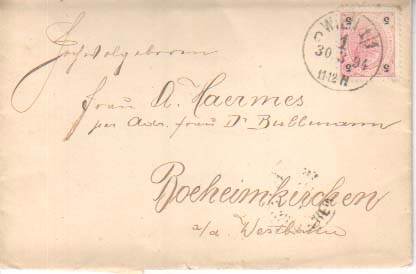 Hochwolgeboren
Frau A. Haermes
per Adr. Frau Dr Bullmann
Boeheimkirchen
a/d Westbahn
WIEN
30 94
11-12 V
5 5
5 5